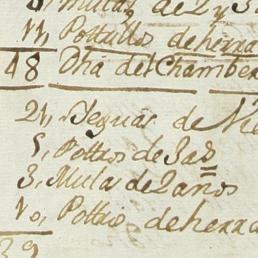 8, Mulas de 2 y 3
11, Potrillos de herra
48 Dha del Chamber
21, Yeguas de Vie
5, Potros de 3 as
3, Mula de 2 años
10, Potro de herrad
39